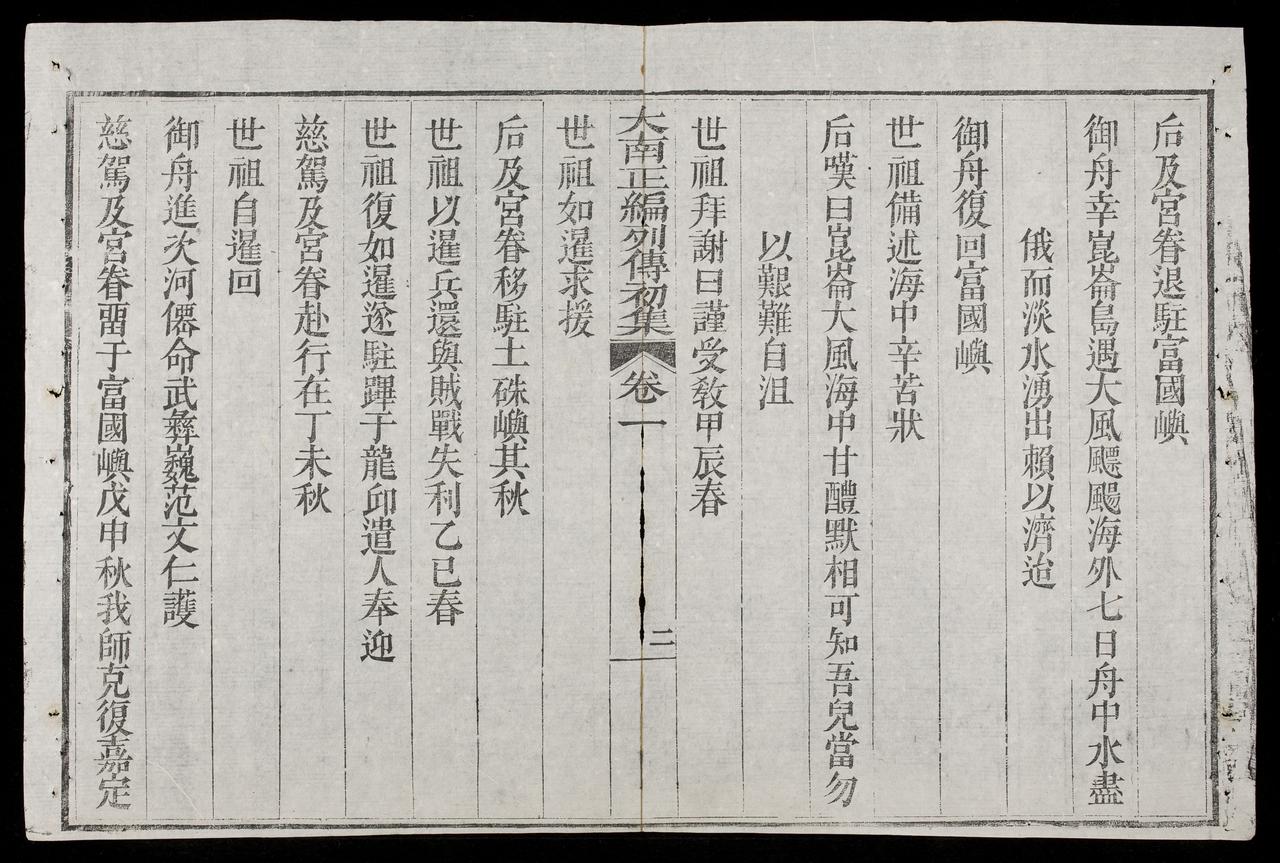 后及宮眷退駐富國嶼
御舟幸崑崙島遇大風飃颺海外七日舟中水盡
俄而淡水湧出賴以濟迨
御舟復回富國嶼
世祖備述海中辛苦狀
后嘆曰崑崙大風海中甘醴默相可知吾兒當勿
以艱難自沮
世祖拜謝曰謹受教甲辰春
大南正編列傳初集 卷一 二
世祖如暹求援
后及宮眷移駐土硃嶼其秋
世祖以暹兵還與賊戰失利乙巳春
世祖復如暹遂駐蹕于龍卬遣人奉迎
慈駕及宮眷赴行在丁未秋
世祖自暹回
御舟進次河僊命武彝巍范文仁護
慈駕及宮眷畱于富國嶼戊申秋我師克復嘉定